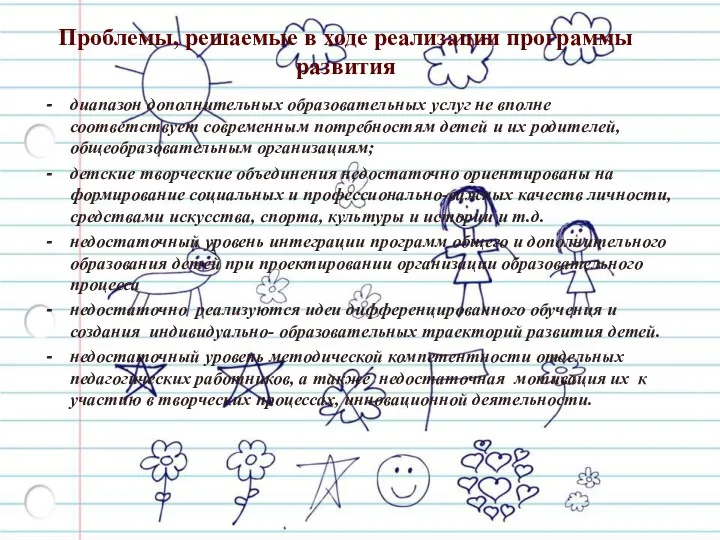 Проблемы, решаемые в ходе реализации программы
развития
- диапазон дополнительных образовательных услуг не вполне
соответствует современным потребностям детей и их родителей,
общеобразовательным организациям;
- детские творческие объединения недостаточно ориентированы на
формирование социальных и профессионально-важных качеств личности,
средствами искусства, спорта, культуры и истории и т.д.
- недостаточный уровень интеграции программ общего и дополнительного
образования детей при проектировании организации образовательного
процесса
- недостаточно реализуются идеи дифференцированного обучения и
создания индивидуально- образовательных траекторий развития детей.
- недостаточный уровень методической компетентности отдельных
педагогических работников, а также недостаточная мотивация их к
участию в творческих процессах, инновационной деятельности.